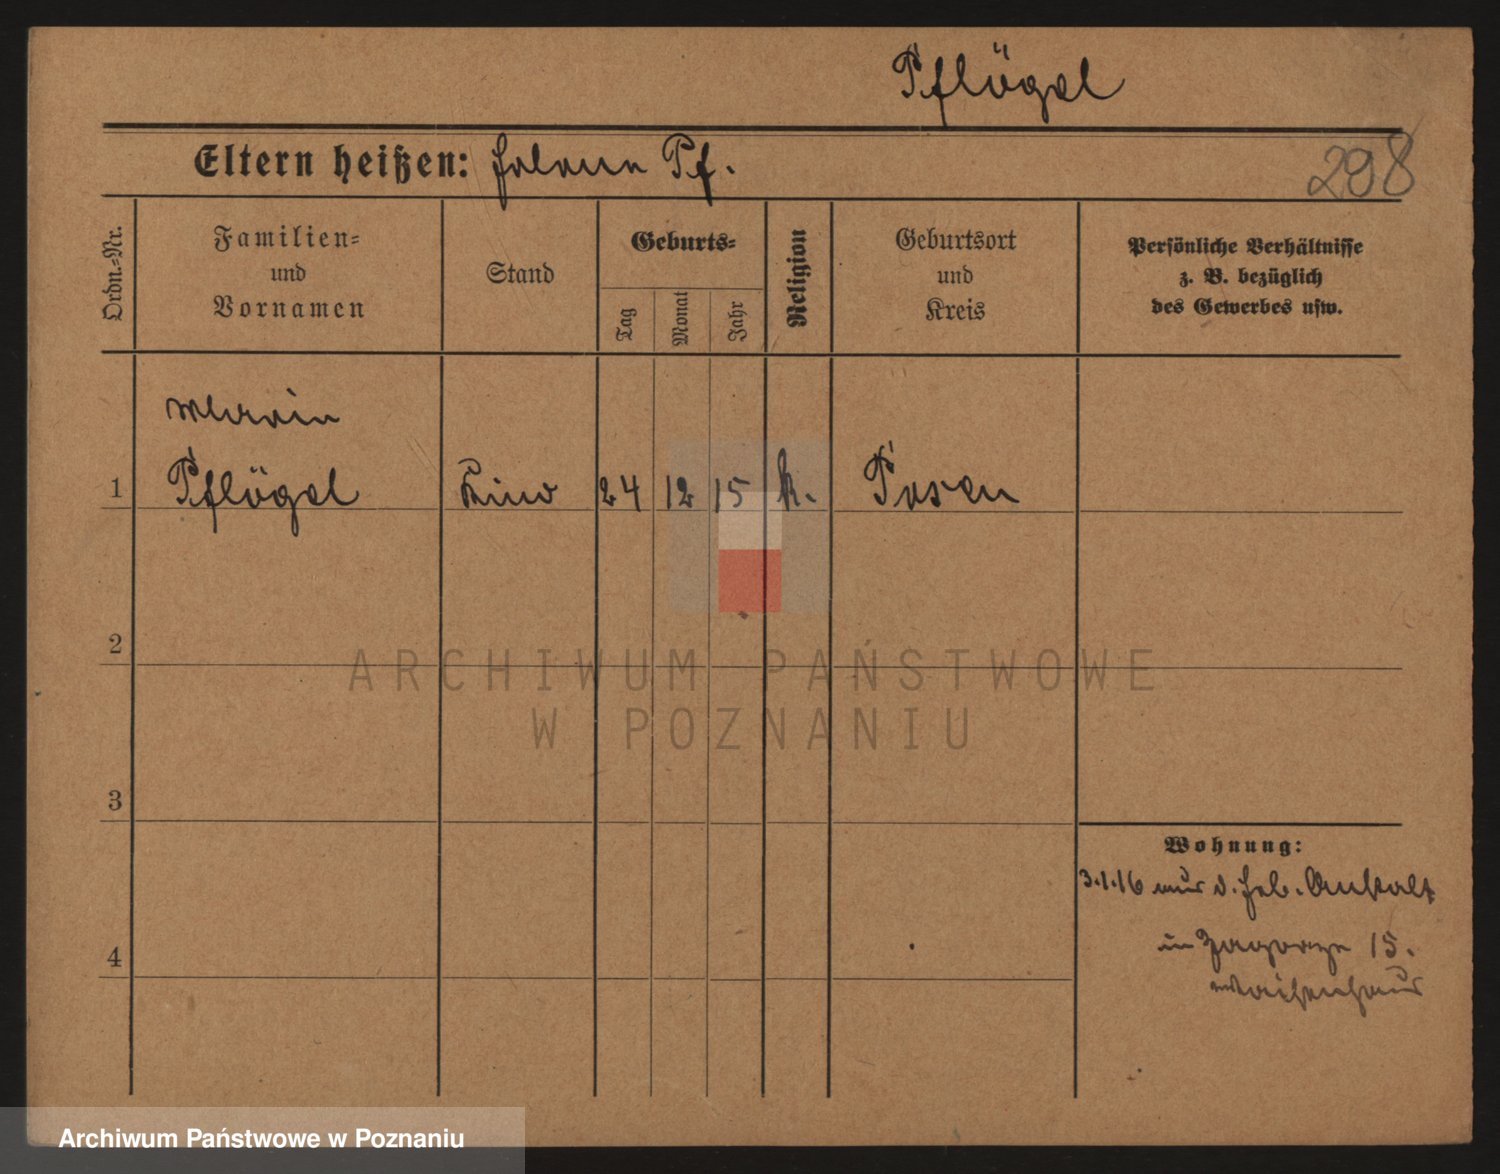 Pflögel
Eltern heißen: Helene Pf.
298
Ordn.-Nr.
Familien-
und
Vornamen
Stand
Geburts-
Tag
Monat
Jahr
Religion
Geburtsort
und
Kreis
Persönliche Verhältnisse
z. B. bezüglich
des Gewerbes usw.
Maria
1 Pflögel Kind 24 12 15 k. Posen
2
3
4
Wohnung:
3.1.16 aus d. Heb. Anstalt
in Zagorze 15.
Waisenhaus
ARCHIWUM PAŃSTWOWE
W POZNANIU
Archiwum Państwowe w Poznaniu